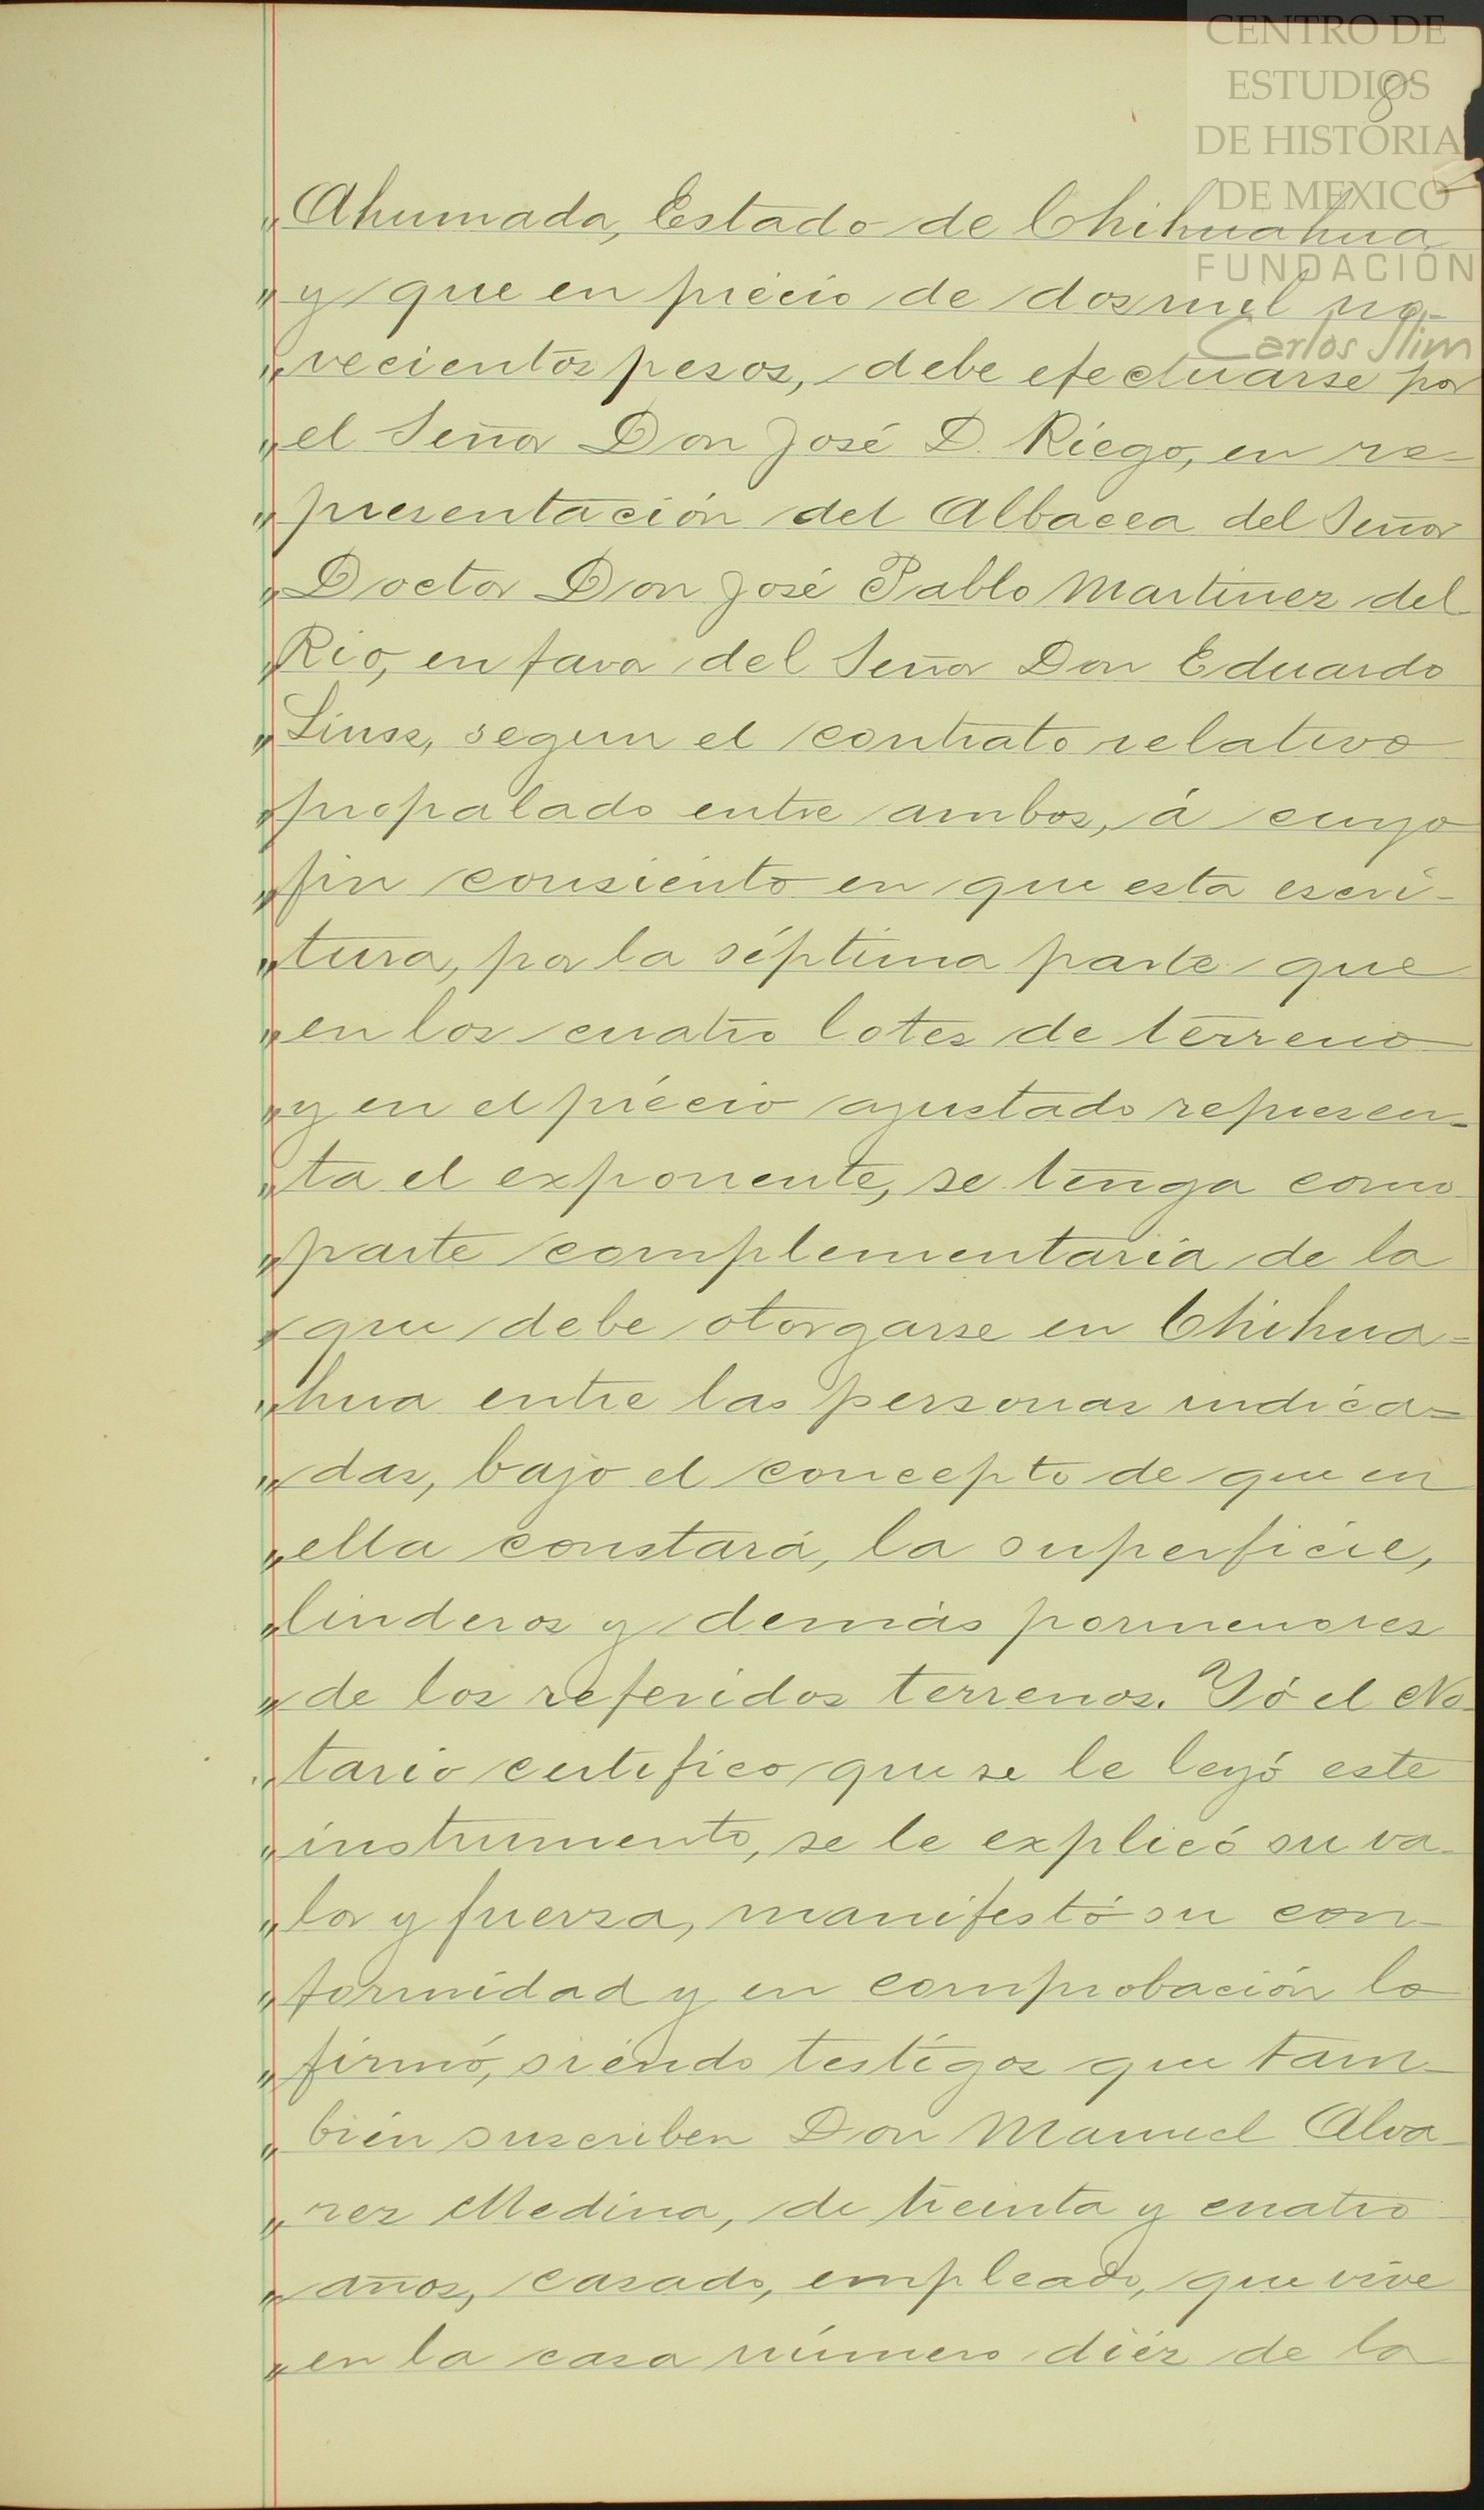 CENTRO DE
ESTUDIOS
8
DE HISTORIA
DE MEXICO
FUNDACIÓN
Carlos Slim
„Ahumada, Estado de Chihuahua
„y que en précio de dos mil no-
„vecientos pesos, debe efectuarse por
„el Señor Don José D. Riego, en re-
„presentación del Albacea del Señor
„Doctor Don José Pablo Martinez del
„Rio, en favor del Señor Don Eduardo
„Linss, segun el contrato relativo
„propalado entre ambos, á cuyo
„fin consiento en que esta escri-
„tura, por la séptima parte que
„en los cuatro lotes de terreno
„y en el précio ajustado represen-
„ta el exponente, se tenga como
„parte complementaria de la
„que debe otorgarse en Chihua=
„hua entre las personas indica=
„das, bajo el concepto de que en
„ella constará, la superficie,
„linderos y demás pormenores
„de los referidos terrenos. Yó el No-
„tario certifico que se le leyó este
„instrumento, se le explicó su va-
„lor y fuerza, manifestó su con-
„formidad y en comprobación lo
„firmó, siendo testigos que tam-
„bién suscriben Don Manuel Alva-
„rez Medina, de treinta y cuatro
„años, casado, empleado, que vive
„en la casa número diéz de la